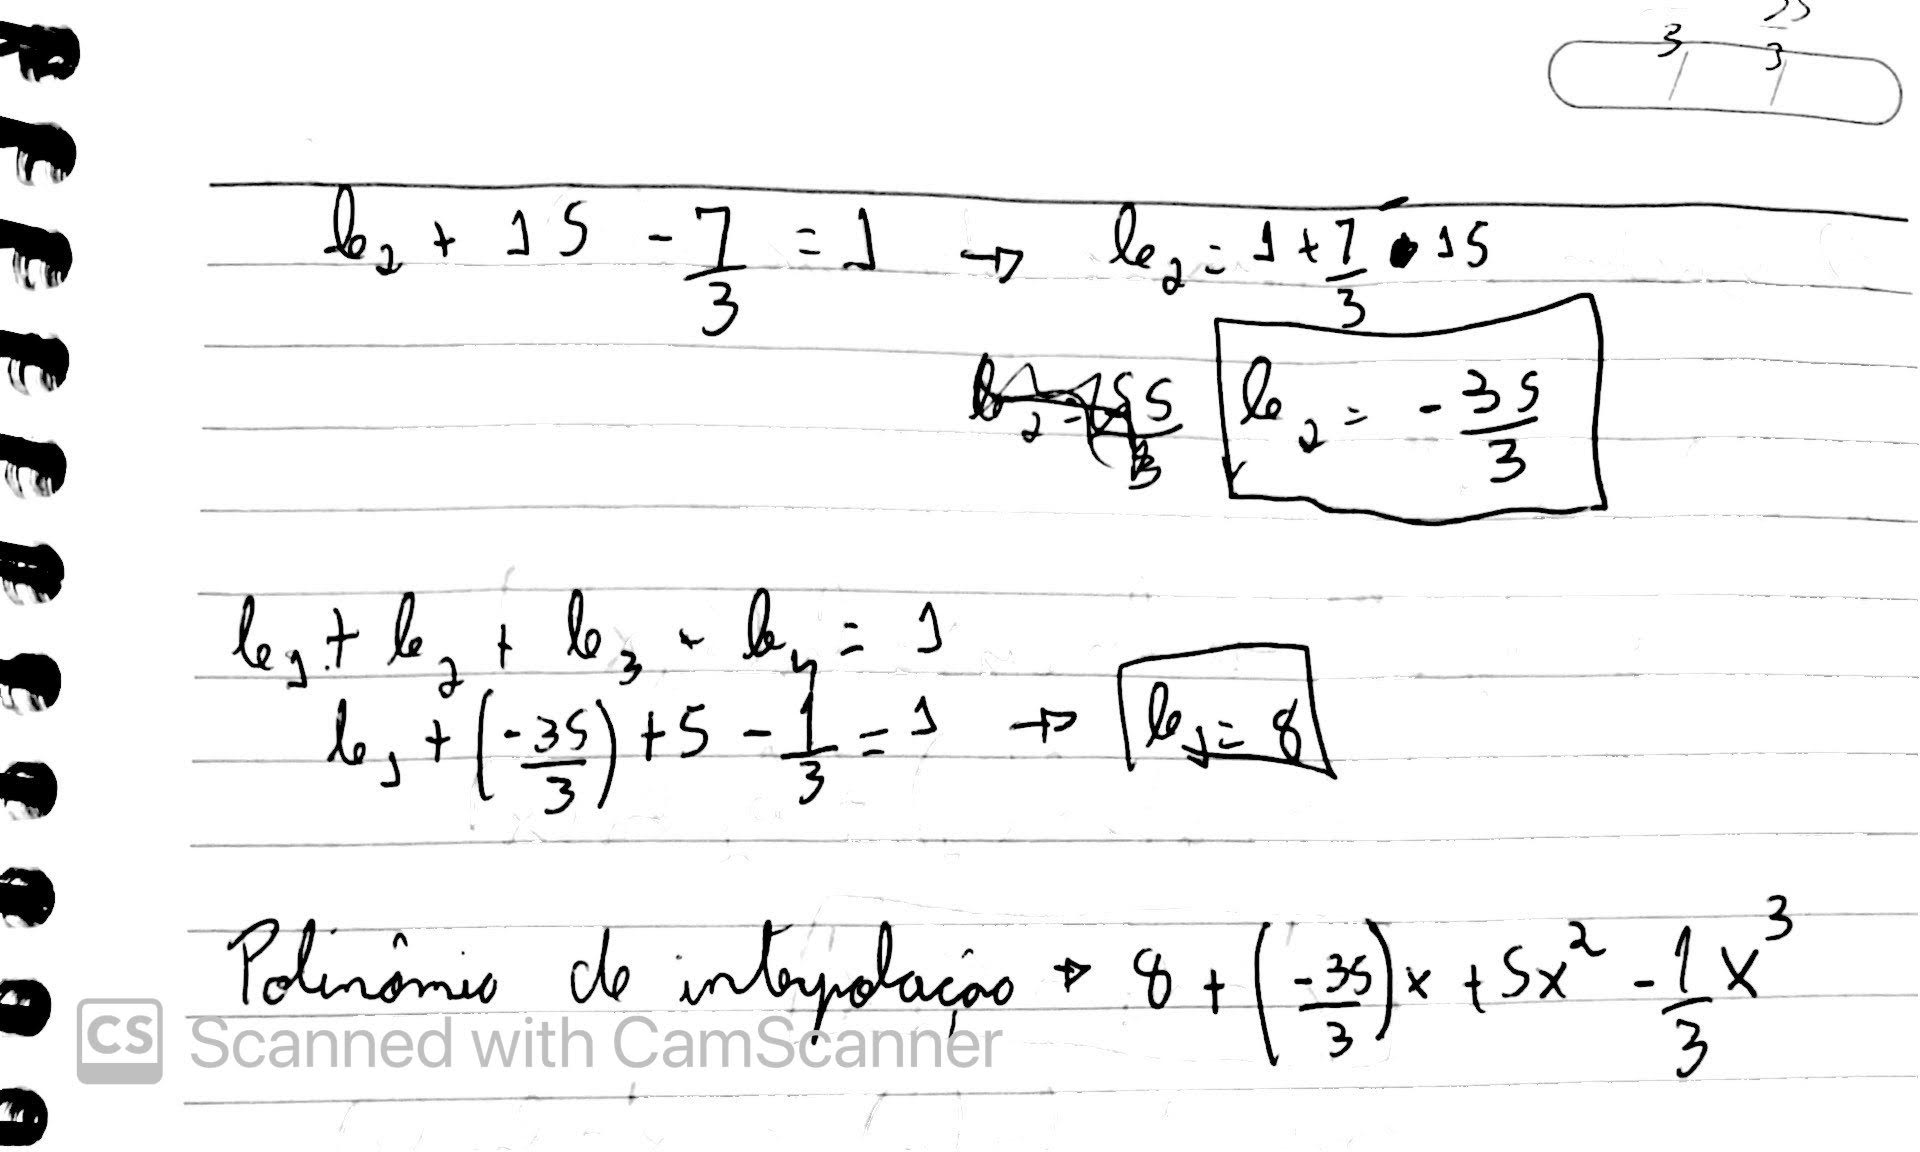 25
5 / 3 /
b₂ + 15 - 7/3 = 1 → b₂ = 1 + 7/3 • 15
b₂ = - 35/3
b₁ + b₂ + b₃ + b₄ = 1
b₁ + (-35/3) + 5 - 1/3 = 1 → b₁ = 8
Polinômio de interpolação → 8 + (-35/3)x + 5x² - 1/3 x³
CS Scanned with CamScanner